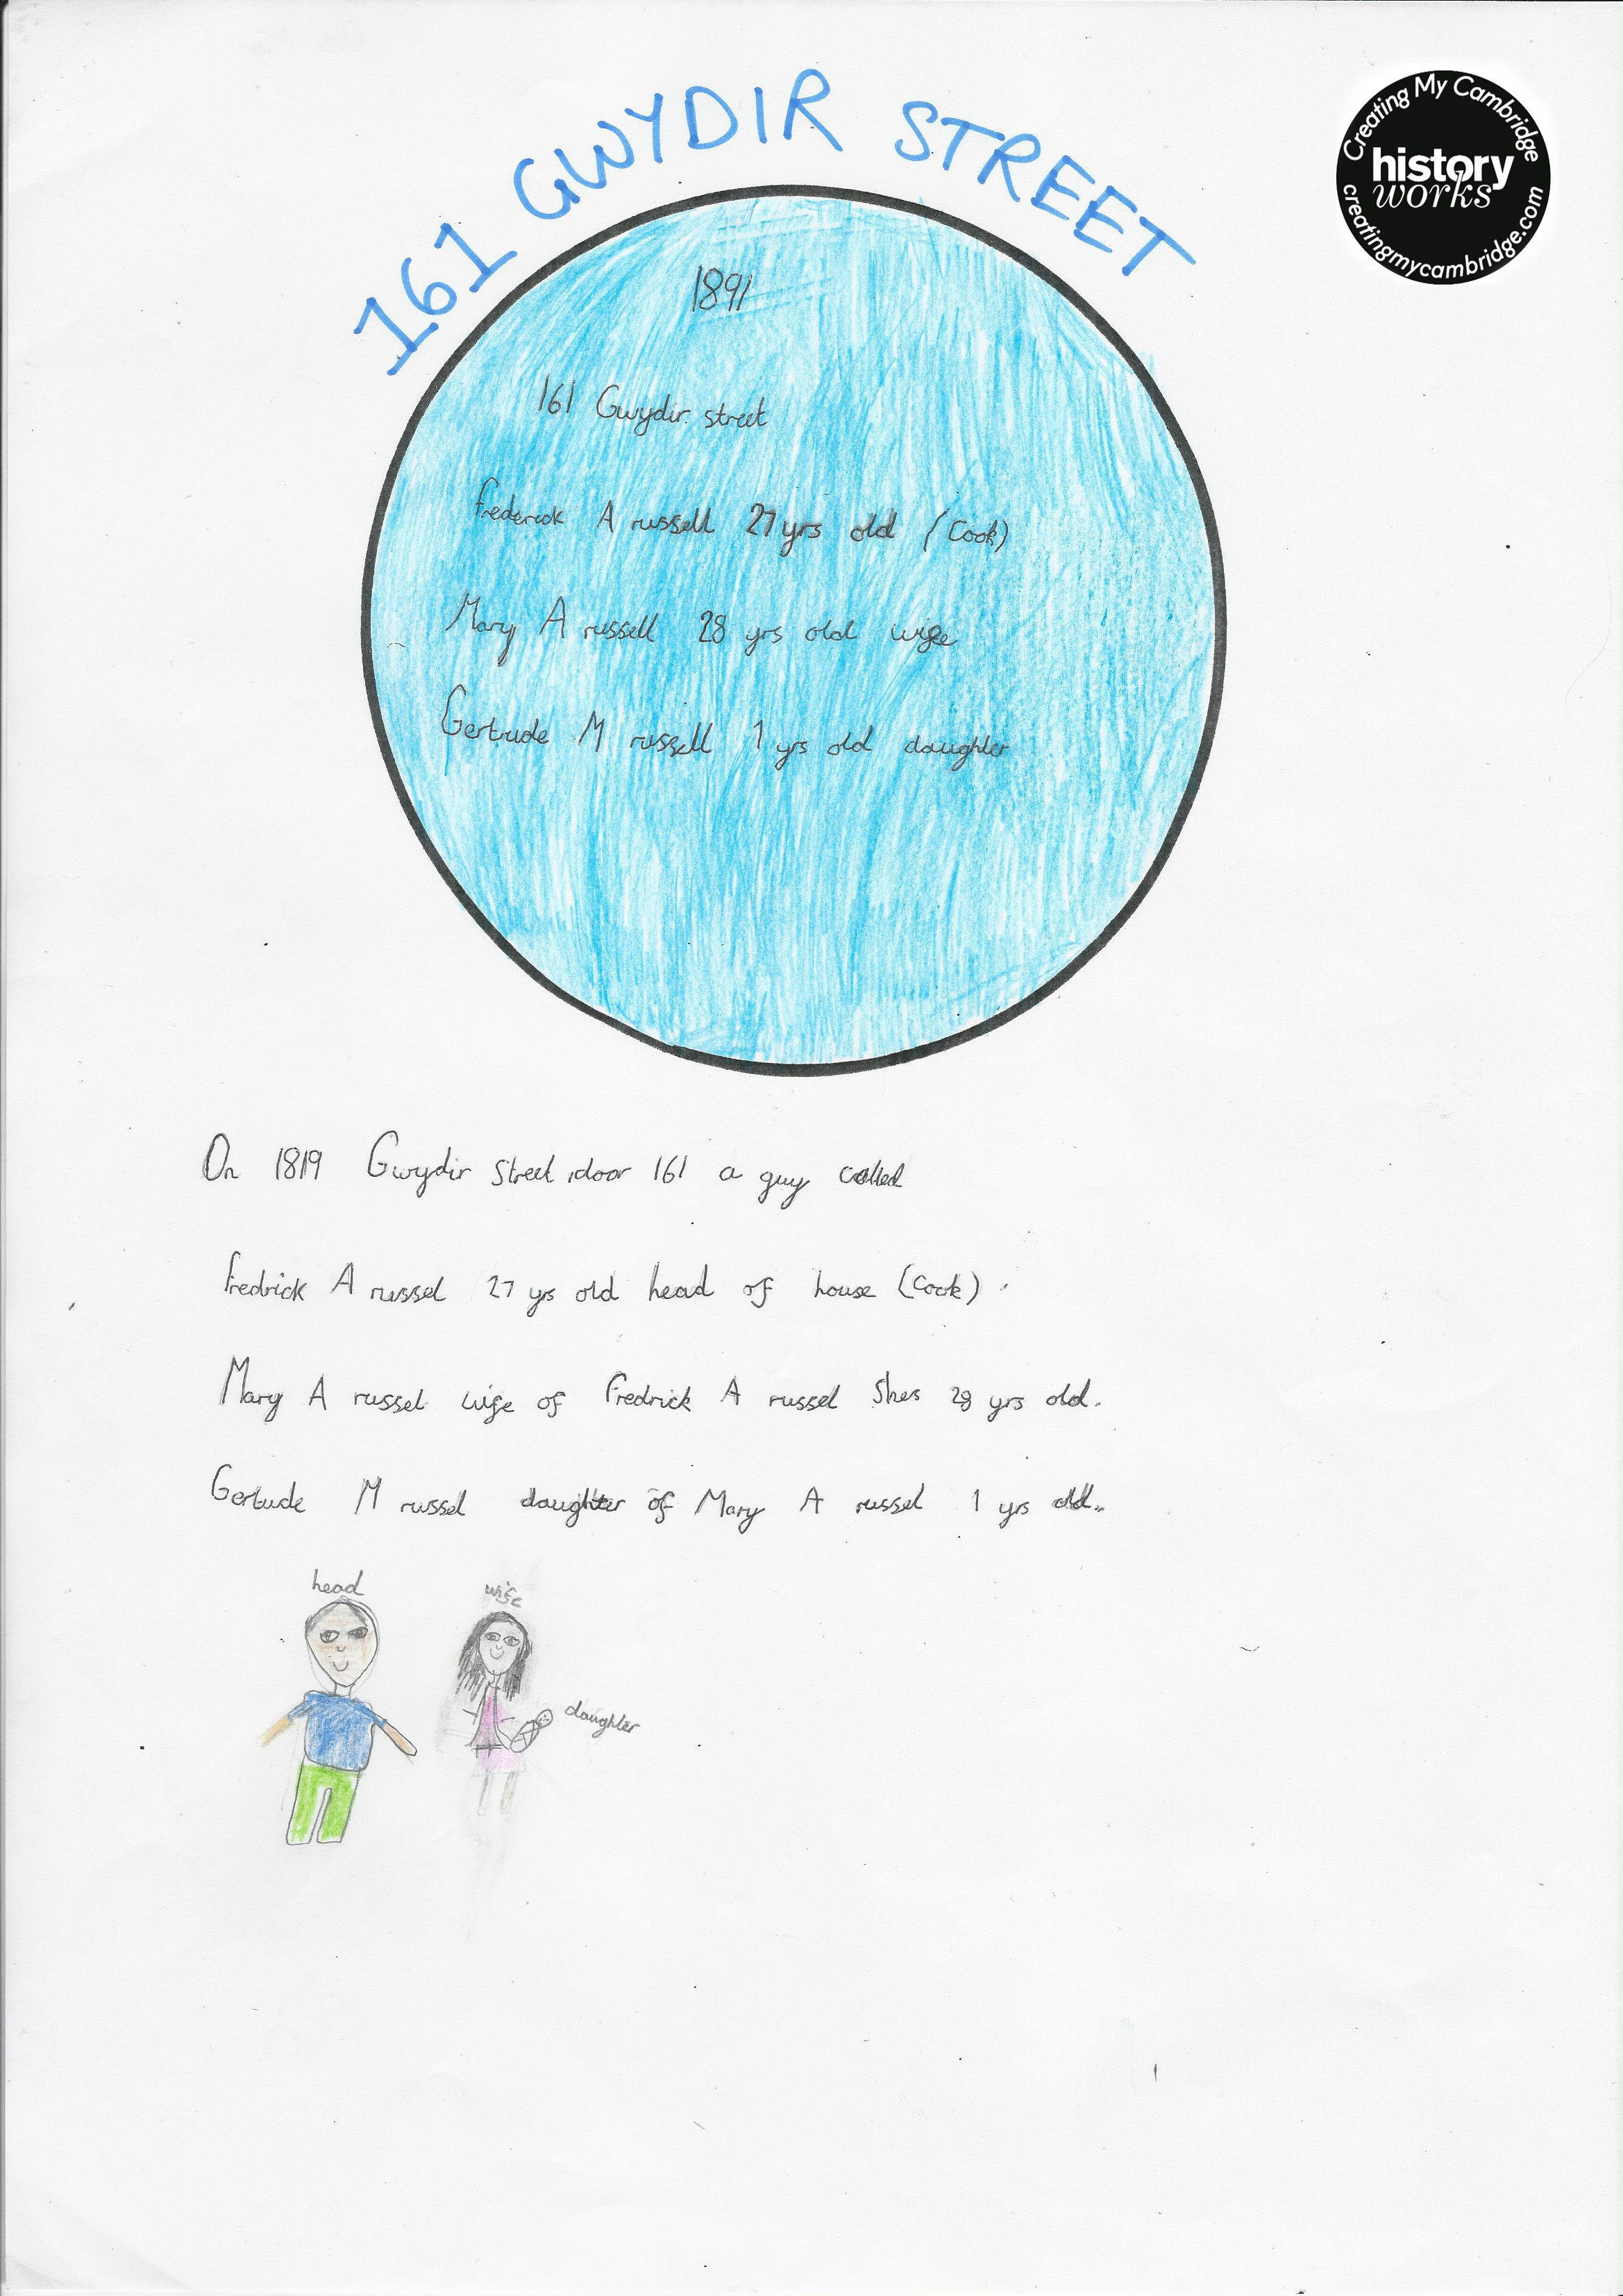 161 GWYDIR STREET
Creating My Cambridge
history
works
creatingmycambridge.com
1891
161 Gwydir street
Frederick A russell 27 yrs old (Cook)
Mary A russell 28 yrs old wife
Gertrude M russell 1 yrs old daughter
On 1819 Gwydir Street door 161 a guy called
Fredrick A russel 27 yrs old head of house (Cook).
Mary A russel wife of Fredrick A russel Shes 28 yrs old.
Gertude M russel daughter of Mary A russel 1 yrs old..
head
wife
daughter